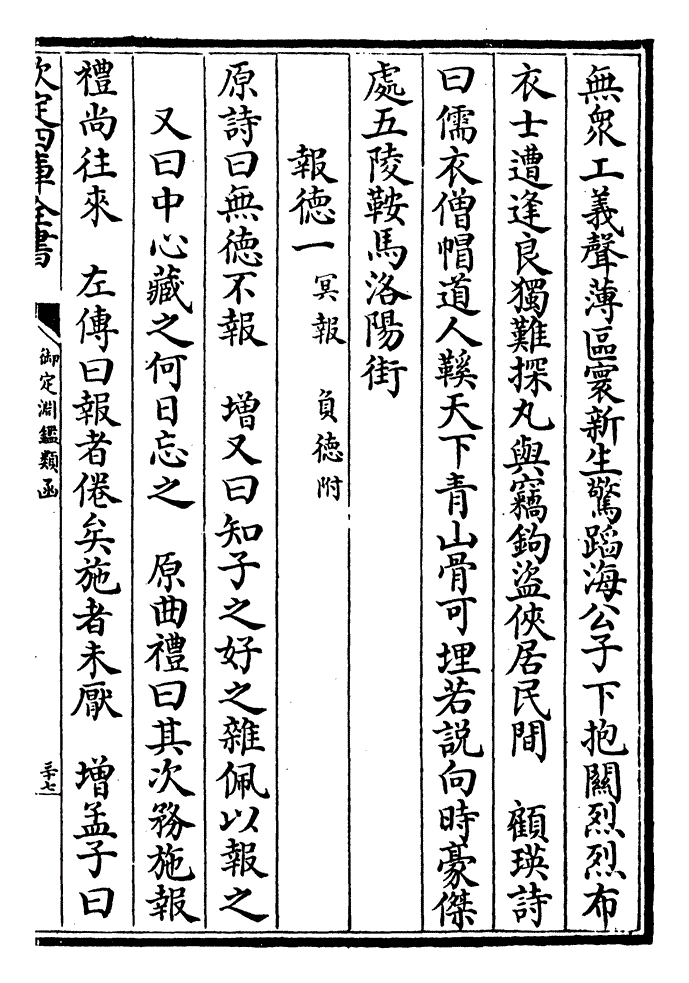 無衆工義聲薄區寰新生驚蹈海公子下抱關烈烈布
衣士遭逢良獨難探丸與竊鉤盜俠居民間　顧瑛詩
曰儒衣僧帽道人鞵天下青山骨可埋若説向時豪傑
處五陵鞍馬洛陽街
報徳一 冥報　負徳附
原詩曰無徳不報　增又曰知子之好之雜佩以報之
又曰中心藏之何日忘之　原曲禮曰其次務施報
禮尚往來　左傳曰報者倦矣施者未厭　增孟子曰
欽定四庫全書
御定淵鑑類函
三十七